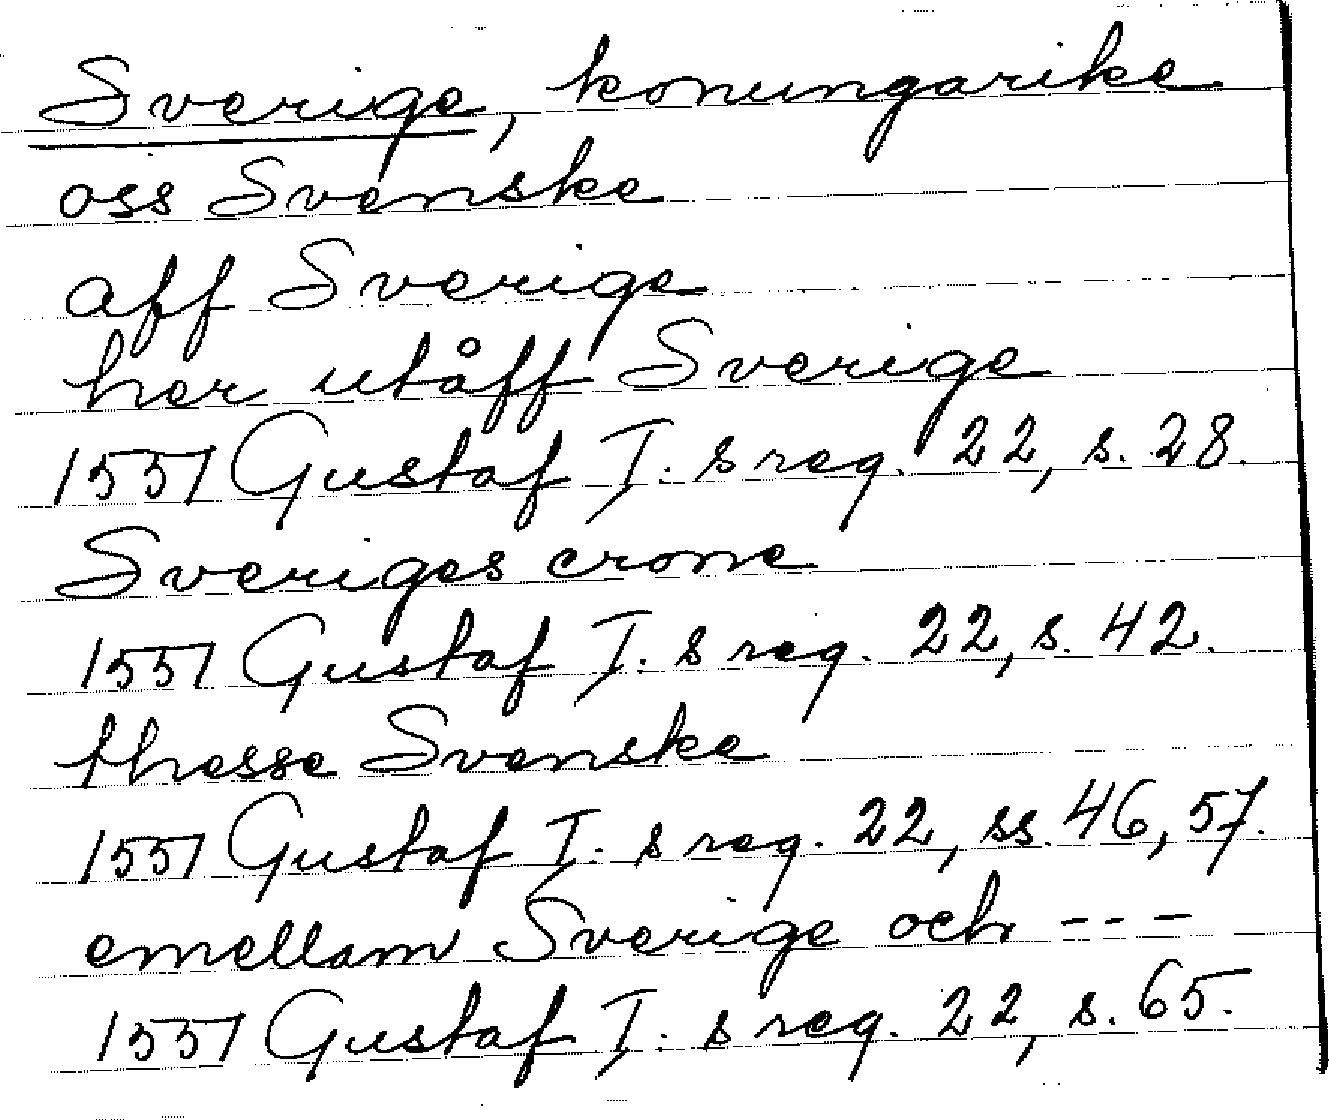 Sverige, konungarike
oss Svenske
aff Sverige
her utåff Sverige
1551 Gustaf I. s reg. 22, s. 28.
Sveriges crone
1551 Gustaf I. s reg. 22, s. 42.
thesse Svenske
1551 Gustaf I. s reg. 22, ss. 46, 57.
emellam Sverige och ---
1551 Gustaf I. s reg. 22, s. 65.